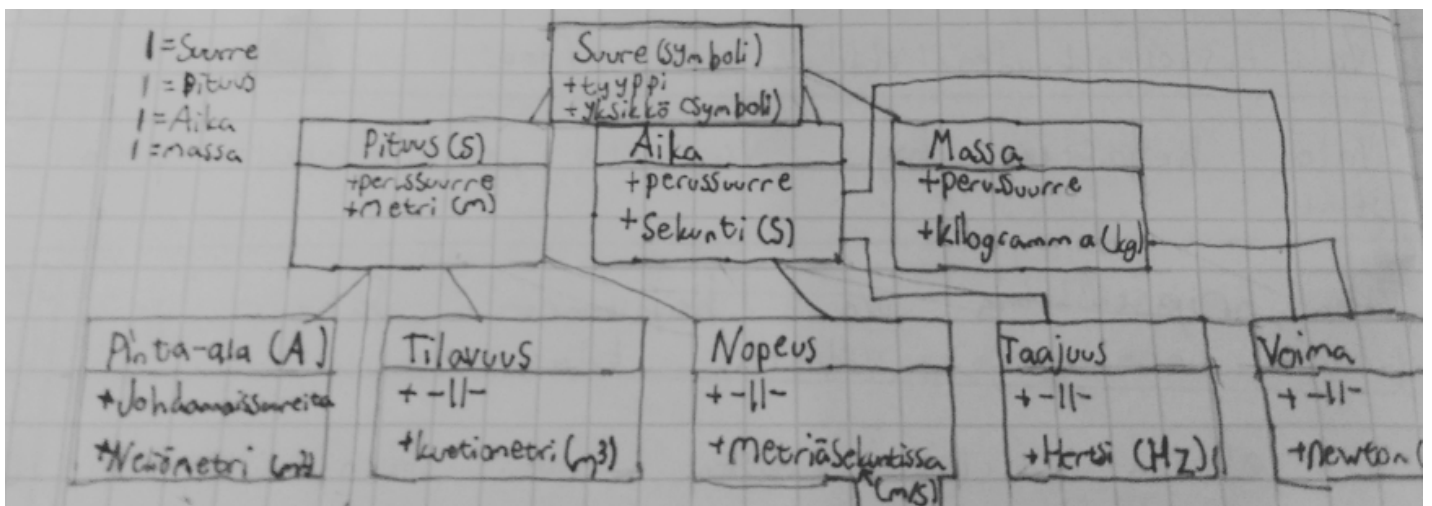 1 = Suurre
1 = Pituus
1 = Aika
1 = massa
Suure (symboli)
+ tyyppi
+ yksikkö (symboli)
Pituus (s)
+perussuurre
+metri (m)
Aika
+perussuurre
+Sekunti (S)
Massa
+perusuurre
+kilogramma (kg)
Pinta-ala (A)
+Johdannaissuureita
+Neliömetri (m²)
Tilavuus
+ -||-
+kuutiometri (m³)
Nopeus
+ -||-
+metriäsekuntissa
(m/s)
Taajuus
+ -||-
+Hertsi (Hz)
Voima
+ -||-
+newton (